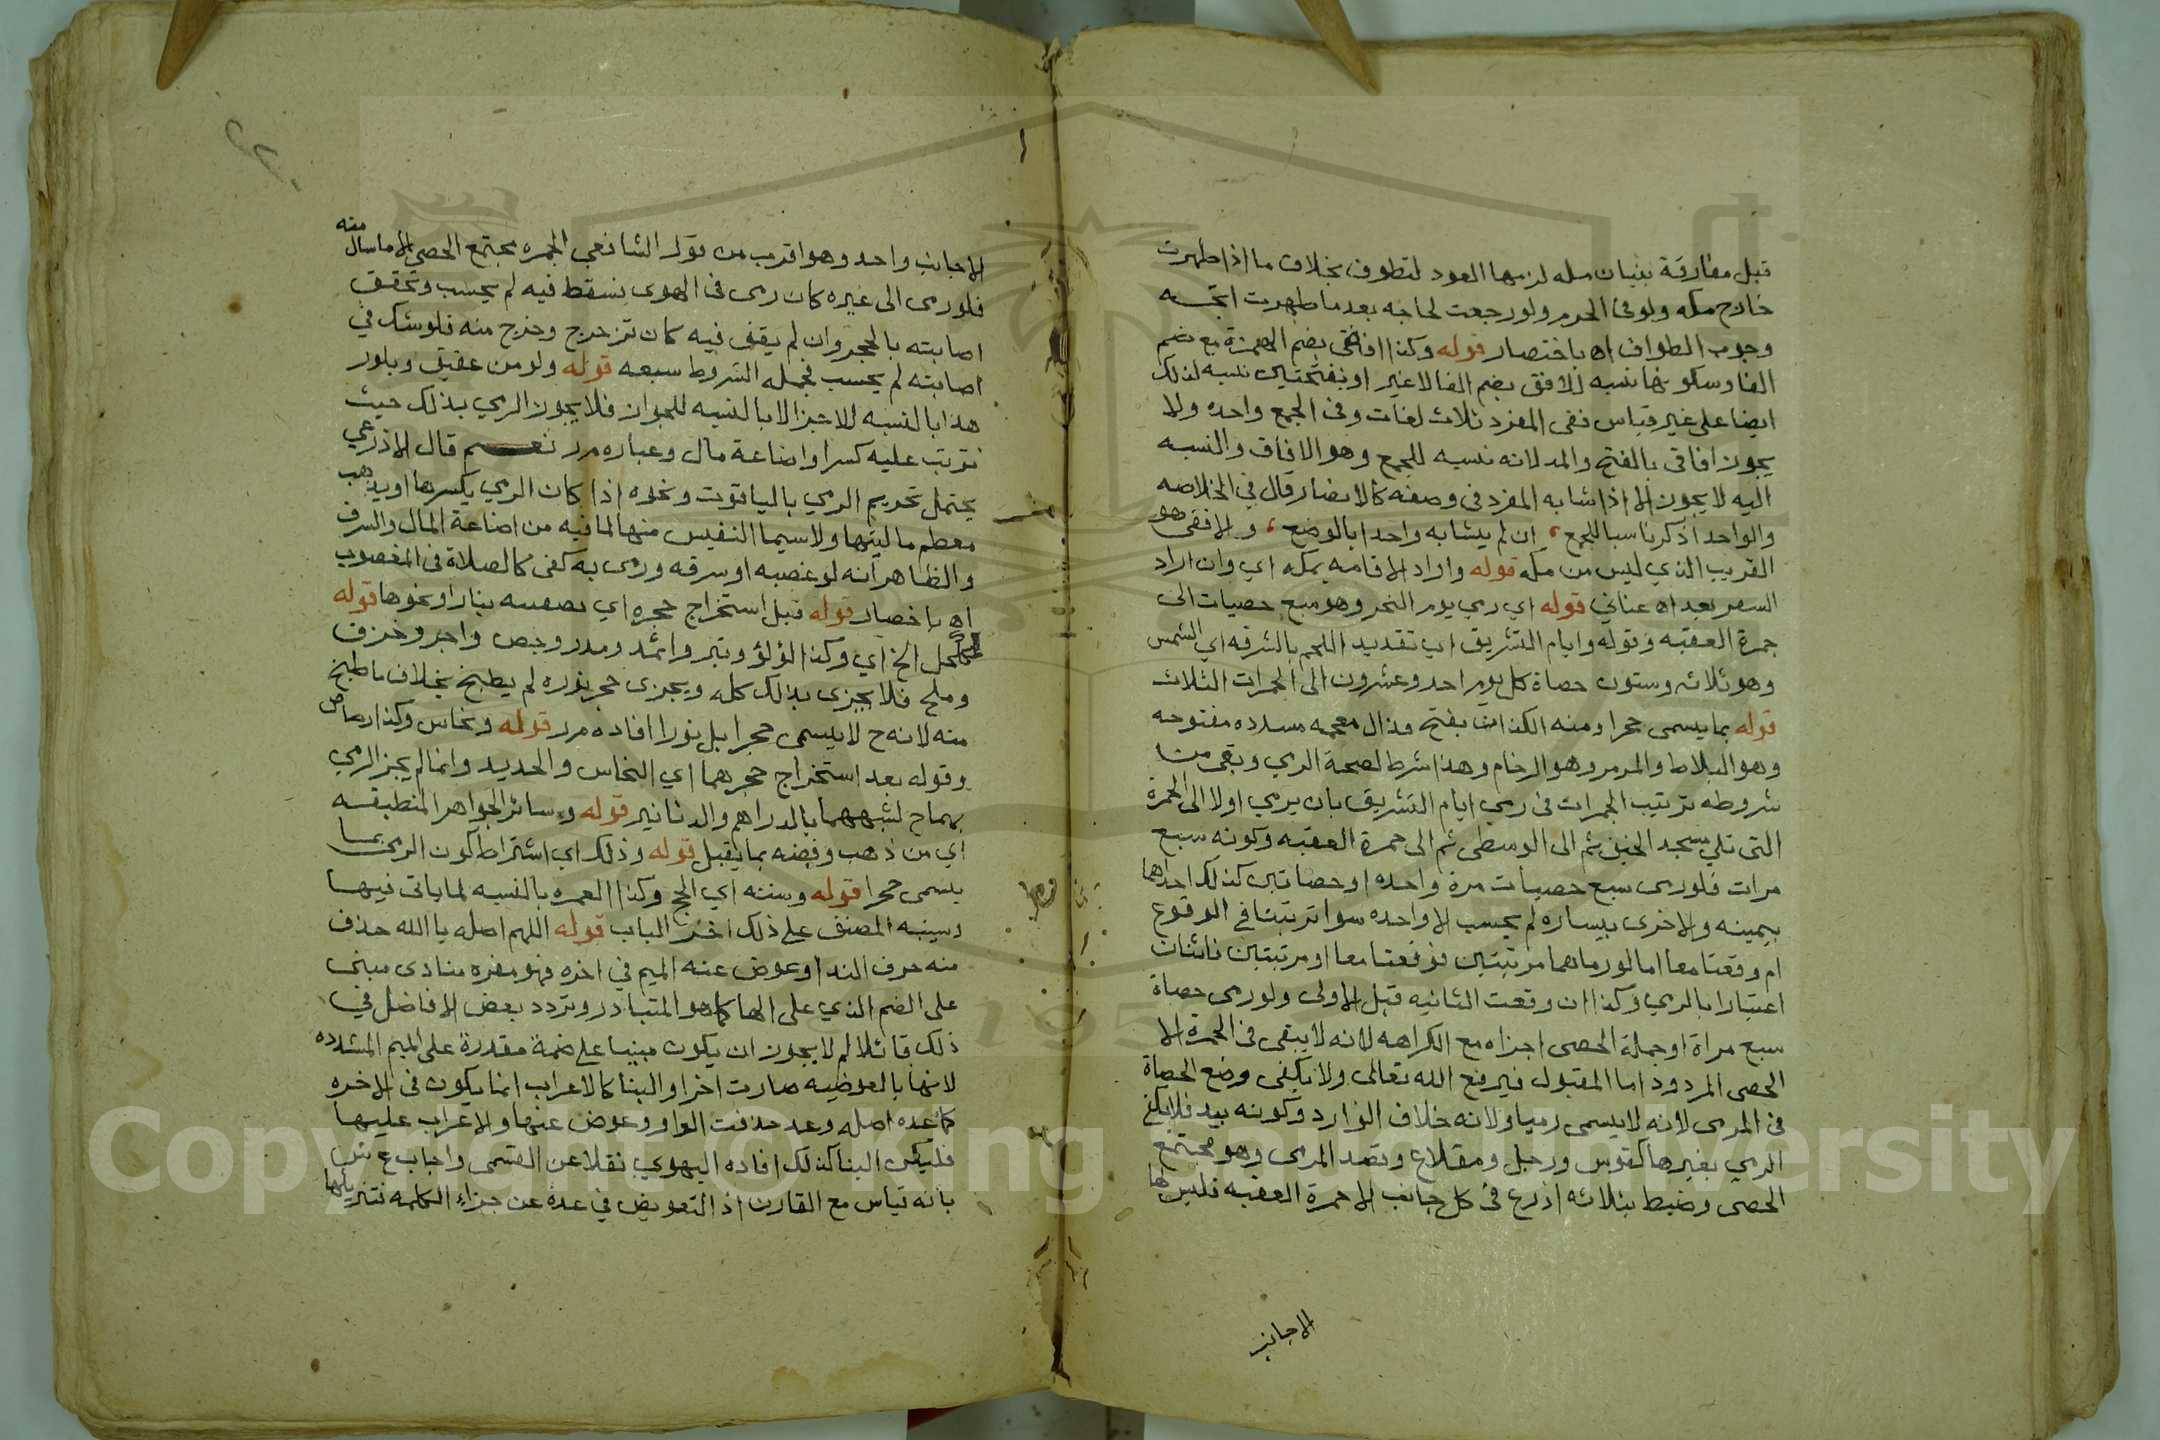 قبل مفارقة بنيان مكه لزمها العود لتطوف بخلاف ما اذا طهرت
خارج مكه ولو في الحرم ولو رجعت لحاجه بعد ما طهرت اتجه
وجوب الطواف اه باختصار قوله وكذا افقى بضم الهمزة مع ضم
الفا وسكونها نسبه للافق بضم الفا لا غير او بفتحتين نسبه لذلك
ايضا على غير قياس ففى المفرد ثلاث لغات وفى الجمع واحده ولا
يجوز افاقى بالفتح والمد لانه نسبه للجمع وهو الافاق والنسبه
اليه لا يجوز الا اذا شابه المفرد فى وصفه كالانصار قال في الخلاصه
والواحد اذكر ناسبا للجمع ، ان لم يشابه واحدا بالوضع ، و الافقى هو
القريب الذي ليس من مكه قوله واراد الاقامه بمكه اي وان اراد
السفر بعد اه عنانى قوله اي رمي يوم النحر وهو سبع حصيات الى
جمرة العقبه وقوله وايام التشريق اي تقديد اللحم بالشرقه اي الشمس
وهو ثلاثه وستون حصاة كل يوم احد وعشرون الى الجمرات الثلاث
قوله بما يسمى حجرا ومنه الكذان بفتح وذال معجمه مشدده مفتوحه
وهو البلاط والمرمر وهو الرخام وهذا شرط لصحة الرمي وبقى من
شروطه ترتيب الجمرات فى رمي ايام التشريق بان يرمي اولا الى الجمرة
التى تلي مسجد الخيف ثم الى الوسطى ثم الى جمرة العقبه وكونه سبع
مرات فلو رمى سبع حصيات مرة واحده او حصاتين كذلك احداهما
بيمينه والاخرى بيساره لم يحسب الا واحده سوا ترتبتا في الوقوع
ام وقعتا معا اما لو رماهما مرتبتين فوقعتا معا او مرتبتين فاثنتان
اعتبارا بالرمي وكذا ان وقعت الثانيه قبل الاولى ولو رمى حصاة
سبع مراة او جملة الحصى اجزاه مع الكراهه لانه لا يبقى فى الجمرة الا
الحصى المردود اما المقبول فيرفع الله تعالى ولا يكفى وضع الحصاة
فى المرمى لانه لا يسمى رميا ولانه خلاف الوارد وكونه بيد فلا يكفى
الرمي بغيرها كقوس ورجل ومقلاع وقصد المرمى وهو مجتمع
الحصى وضبط بثلاثه اذرع فى كل جانب الا جمرة العقبه فليس لها
الا جانب
الا جانب واحد وهو اقرب من قول الشافعي الجمره مجتمع الحصى لا ما سال منه
فلو رمى الى غيره كان رمى فى الهوى فسقط فيه لم يحسب وتحقق
اصابته بالحجر وان لم يقف فيه كان تزحرج وخرج منه فلو شك في
اصابته لم يحسب فجمله الشروط سبعه قوله ولو من عقيق وبلور
هذا بالنسبه للاجزا لا بالنسبه للجواز فلا يجوز الرمي بذلك حيث
ترتب عليه كسر او اضاعة مال وعباره م ر نعم قال الاذرعي
يحتمل تحريم الرمي بالياقوت ونحوه اذا كان الرمي يكسرها او يذهب
معظم ماليتها ولاسيما النفيس منها لما فيه من اضاعة المال والسرف
والظاهر انه لو غصبه او سرقه ورمى به كفى كالصلاة فى المغصوب
اه باخصار قوله قبل استخراج حجره اي تصفيته بنار او نحوها قوله
كحل الخ اي وكذا لؤلؤ وتبر واثمد ومدر وجص واجر وخزف
وملح فلا يجزى بذلك كله ويجزى حجر نوره لم يطبخ بخلاف ما طبخ
منه لانه ح لا يسمى حجرا بل نورا افاده م ر قوله ونحاس وكذا رصاص
وقوله بعد استخراج حجرهما اي النحاس والحديد وانما لم يجز الرمي
بهما ح لشبههما بالدراهم والدنانير قوله وسائر الجواهر المنطبقه
اي من ذهب وفضه بما يقبل قوله وذلك اي اشتراط كون الرمى بما
يسمى حجرا قوله وسننه اي الحج وكذا العمره بالنسبه لما ياتى فيها
وسينبه المصنف على ذلك اخر الباب قوله اللهم اصله يا الله حذف
منه حرف الندا وعوض عنه الميم في اخره فهو مفرد منادى مبنى
على الضم الذي على الها كما هو المتبادر وتردد بعض الافاضل في
ذلك قائلا لم لا يجوز ان يكون مبنيا على ضمة مقدرة على الميم المشدده
لانها بالعوضيه صارت اخرا والبنا كالاعراب انما يكون فى الاخره
كما عده اصله وعد حذفت الواو وعوض عنها والاعراب عليها
فليكن البنا كذلك افاده اليهوي نقلا عن القسمى واجاب ع ش
بانه قياس مع الفارق اذ التعويض في عدة عن جزاء الكلمه فتنزيلها